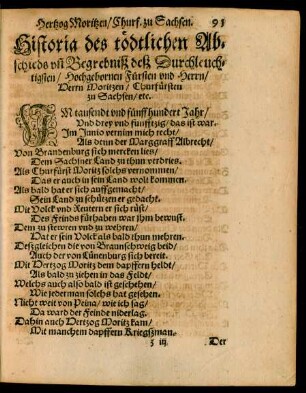 Hertzog Moritzen / Churf. zu Sachsen. 91
Historia des tödtlichen Ab-
schieds vñ Begrebniß deß Durchleuch-
tigsten / Hochgebornen Fürsten vnd Herrn /
Herrn Moritzen / Churfürsten
zu Sachsen / etc.
IM tausendt vnd fünffhundert Jahr /
Vnd drey vnd funfftzig / das ist war.
Im Junio vernim mich recht /
Als denn der Marggraff Albrecht /
Von Brandenburg sich mercken lies /
Dem Sachsner Land zu thun verdries.
Als Churfürst Moritz solchs vernommen /
Das er auch in sein Land wolt kommen.
Als bald hat er sich auffgemacht /
Sein Land zu schützen er gedacht.
Mit Volck vnd Reutern er sich rüst /
Des Feinds fürhaben war jhm bewust.
Dem zu stewren vnd zu wehren /
Hat er sein Volck als bald thun mehren.
Deßgleichen die von Braunschweig beid /
Auch der von Lünenburg sich bereit.
Mit Hertzog Moritz dem dapffern heldt /
Als bald zu ziehen in das Feldt.
Welchs auch also bald ist geschehen /
Wie jederman solchs hat gesehen.
Nicht weit von Peina / wie ich sag /
Da ward der Feinde niderlag.
Dahin auch Hertzog Moritz kam /
Mit manchem dapffern Kriegßman.
z iij. Der